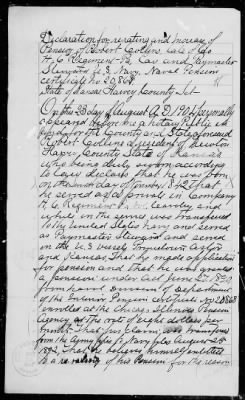 Declaration for rerating and increase of
Pension of Robert Collins, late of Co
H, 6 Regiment Pa Cav and Paymaster
Steward U.S. Navy, Naval Pension
certificate no 20868
State of Kansas Harvey County
On this 23 day of August A.D. 1904 personally
appeared before me a Notary Public
and for the County and State aforesaid
Robert Collins a resident of Newton
Harvey County State of Kansas
who being duly sworn according
to Law declares that he was born
on the day of 1842 That he
served as a private in Company
H 6 Regiment Pa Cavalry and
while in the service was transferred
to the United States Navy and served
as Paymaster Steward and served
on the U.S. Vessels
and Kansas. That he made application
for pension and That he was granted
a pension under act June 27, 1890
from Naval division of Department
of the Interior Pension Certificate No 20868
enrolled at the Chicago Illinois Pension
Agency at the rate of eight dollars per
month. That his claim was transferred
from the Army files to Navy files August 24
1892 That he believes himself entitled
to a rerating of his Pension for the reason